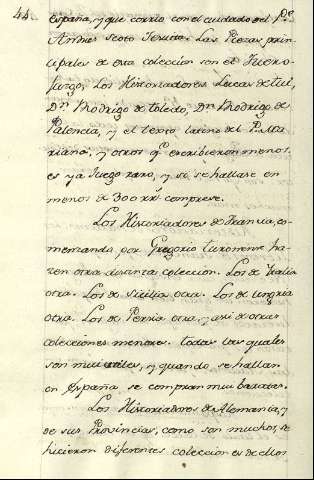 44
España, y que corrio con el cuidado del P.e
Andres Scoto Jesuita. Las Piezas prin-
cipales de esta coleccion son el Fuero-
Juzgo, Los Historiadores Lucas de tui,
Dn. Rhodrigo de toledo, Dn. Rhodrigo de
Palencia, y el texto latino del P. Ma
riana, y otros q.e escribieron menos.
es ya Juego raro, y si se hallase en
menos de 300 rr.s comprese.
Los Historiadores de Francia, co-
menzando por Gregorio turonense ha-
zen otra distinta coleccion. Los de Italia
otra. Los de Sicilia otra. Los de ungria
otra. Los de Persia otra, y asi de otras
colecciones menores. todas las quales
son mui utiles, y quando se hallan
en España se compran mui baratas.
Los Historiadores de Alemania, y
de sus Provincias, como son muchos, se
hicieron diferentes colecciones de ellos